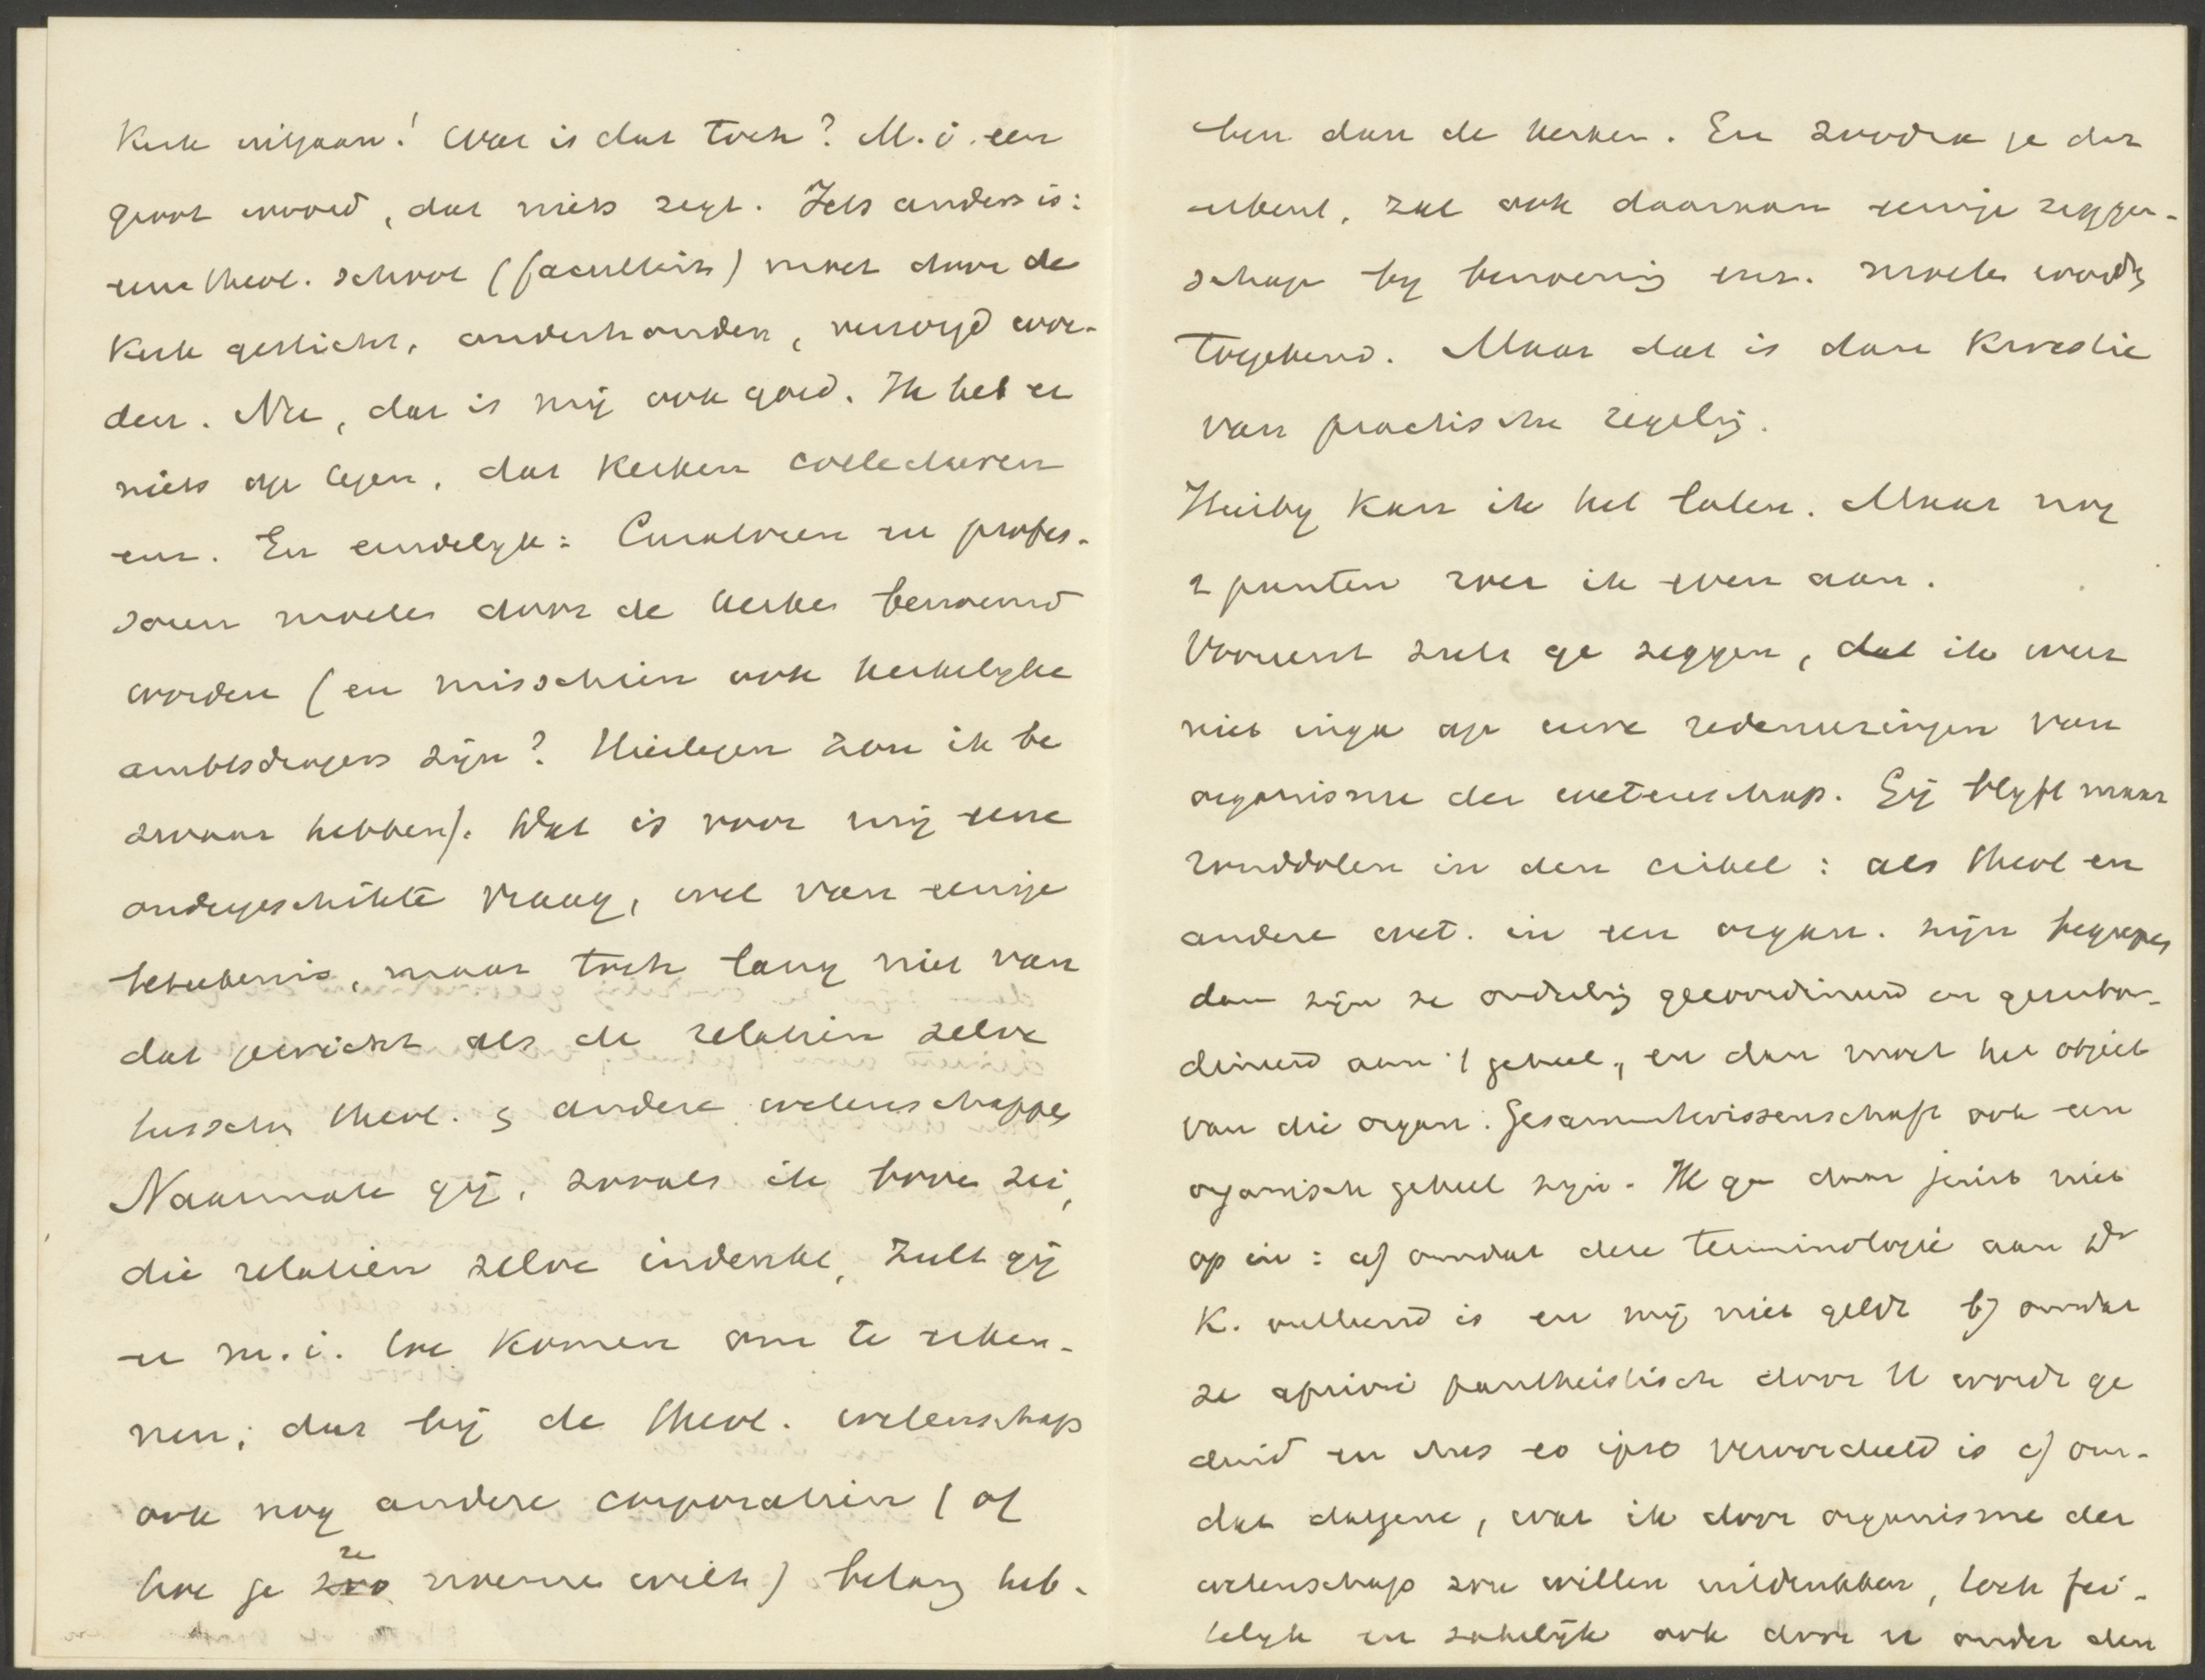 Kerk uitgaan! Wat is dat toch? M.i. een
groot woord, dat niets zegt. Iets anders is:
eene theol. school (faculteit) moet door de
Kerk gesticht, onderhouden, verzorgd wor-
den. Nu, dat is mij ook goed. Ik heb er
niets op tegen, dat Kerken collecteeren
enz. En eindelyk: Curatoren en profes-
soren moeten door de kerken benoemd
worden (en misschien ook kerkelyke
ambtsdragers zijn? Hiertegen zou ik be
zwaar hebben). Dat is voor mij eene
ondergeschikte vraag, wel van eenige
beteekenis, maar toch lang niet van
dat gewicht als de relatien zelve
tusschen theol. & andere wetenschappen
Naarmate gij, zooals ik boven zei,
die relatien zelve indenkt, zult gij
er m.i. toe komen om te erken-
nen, dat bij de theol. wetenschap
ook nog andere corporatien (of
hoe je ze noemen wilt) belang heb-
ben dan de kerken. En zoodra je dat
erkent, zal ook daaraan eenige zeggen-
schap by benoeming enz. moeten worden
toegekend. Maar dat is dan kwestie
van practische regeling.
Hierby kan ik het laten. Maar nog
2 punten roer ik even aan.
Vooreerst zult ge zeggen, dat ik weer
niet inga op uwe redeneeringen van
organisme der wetenschap. Gij blyft maar
ronddolen in den cirkel: als theol en
andere wet. in een organ. zijn begrepen
dan zijn ze onderling gecoordineerd en gesubor-
dineerd aan 't geheel, en dan moet het object
van die organ. Gesammtwissenschaft ook een
organisch geheel zijn. Ik ga daar juist niet
op in: a) omdat deze terminologie aan Dr
K. ontleend is en mij niet geldt b) omdat
ze apriori pantheistisch door U wordt ge
duid en dus eo ipso veroordeeld is c) om-
dat datgene, wat ik door organisme der
wetenschap zou willen uitdrukken, toch fei-
telyk en zakelijk ook door u onder den